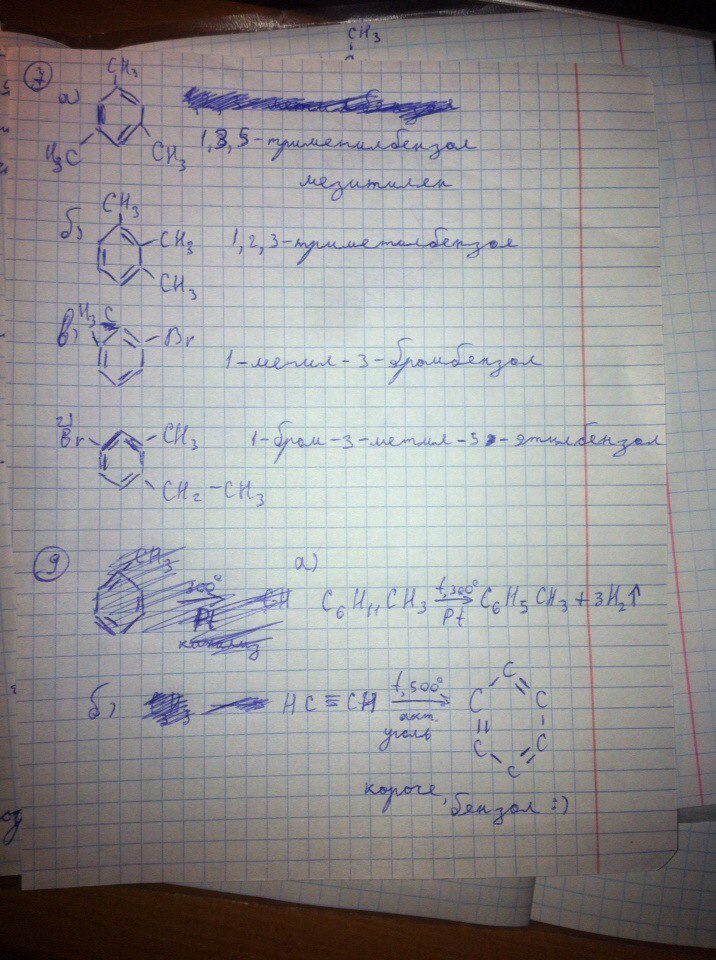 CH₃
7
CH₃
а)
H₃C
CH₃
1,3,5-триметилбензол
мезитилен
CH₃
б)
CH₃
CH₃
1,2,3-триметилбензол
H₃C
в)
Br
1-метил-3-бромбензол
г)
Br
CH₃
CH₂-CH₃
1-бром-3-метил-5-этилбензол
9
CH₃
300°
Pt
CH
а)
C₆H₁₁CH₃ t,300° Pt → C₆H₅CH₃ + 3H₂↑
б)
HC≡CH t,500° акт. уголь →
C
C
C
C
C
C
короче, бензол :)